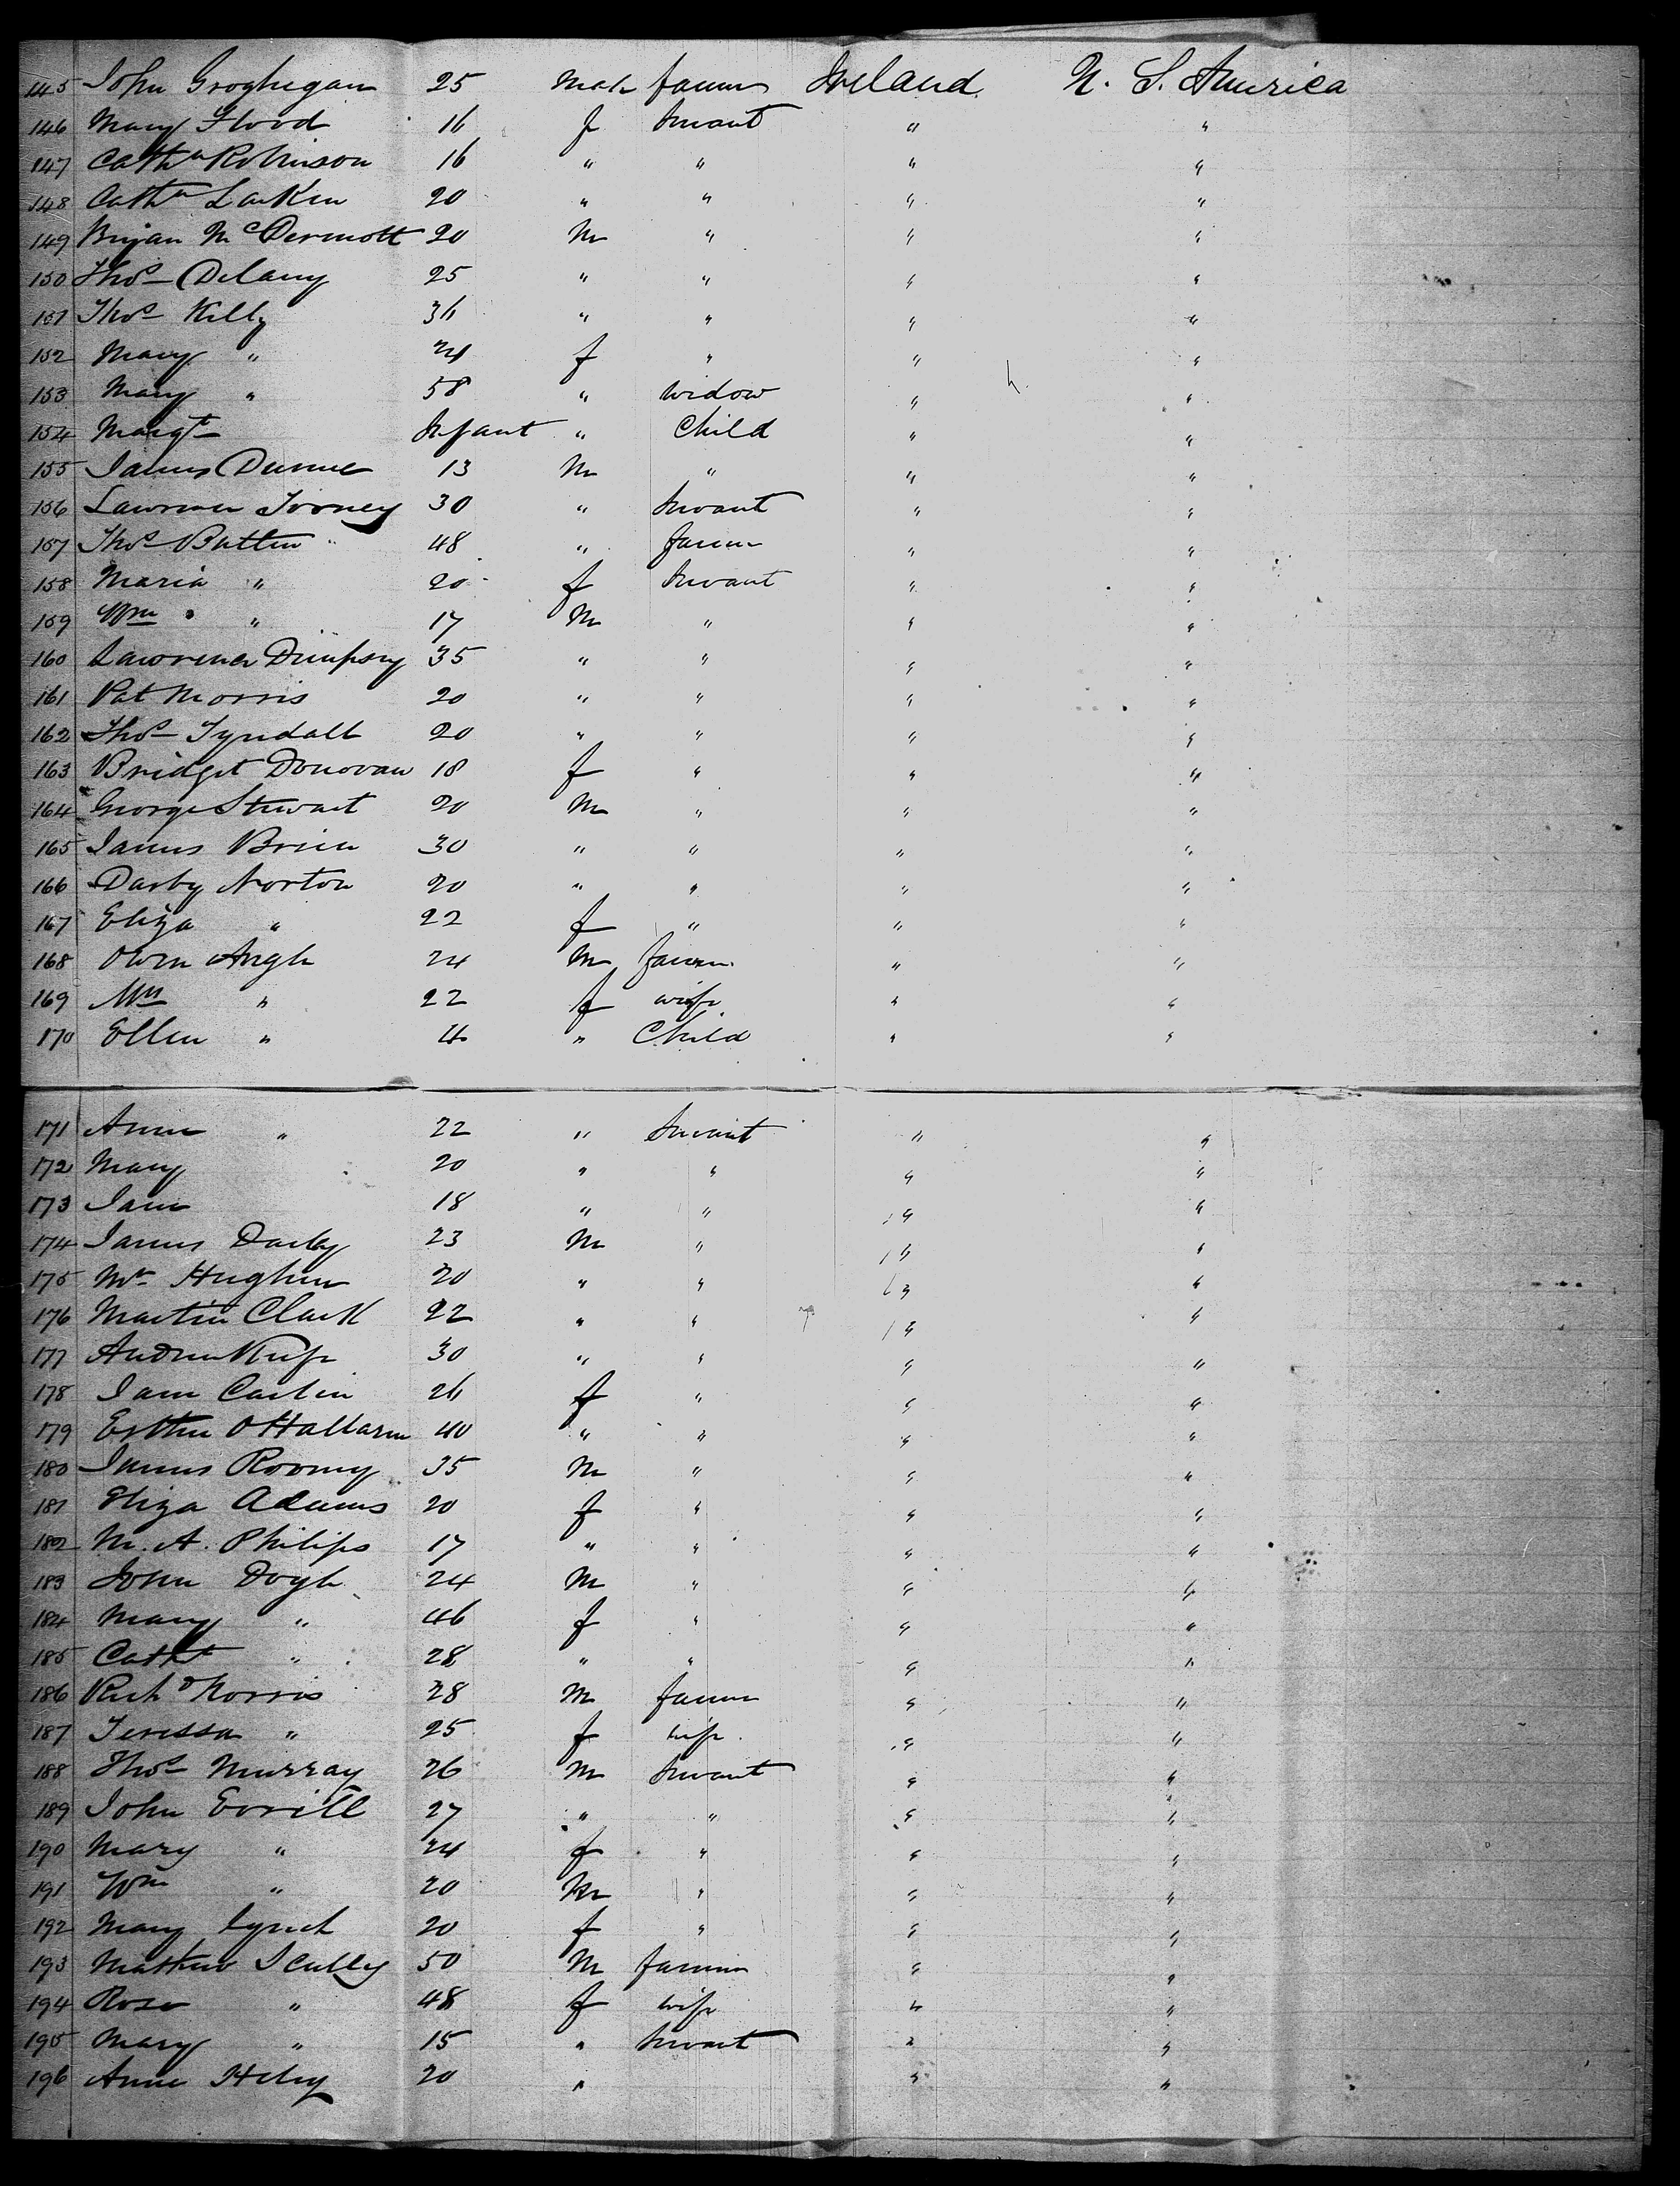 145 John Groghegan 25 Male farmer Ireland. U. S. America
146 Mary Flood 16 f Servant " "
147 Cathn Robinson 16 " " " "
148 Cathn Larkin 20 " " " "
149 Bryan McDermott 20 M " " "
150 Thos Delany 25 " " " "
151 Thos Kelly 36 " " " "
152 Mary " 24 f " " "
153 Mary " 58 " widow " "
154 Margt Infant " Child " "
155 James Dunne 13 M " " "
156 Lawrence Tooney 30 " Servant " "
157 Thos Batten 48 " farmer " "
158 Maria " 20 f Servant " "
159 Wm " 17 M " " "
160 Lawrence Dempsey 35 " " " "
161 Pat Morris 20 " " " "
162 Thos Tyndall 20 " " " "
163 Bridget Donovan 18 f " " "
164 George Stewart 20 M " " "
165 James Brien 30 " " " "
166 Darby Norton 20 " " " "
167 Eliza " 22 f " " "
168 Owen Angle 24 M farmer " "
169 Mrs " 22 f wife " "
170 Ellen " 4 " Child " "
171 Anne " 22 " Servant " "
172 Mary 20 " " " "
173 Jane 18 " " " "
174 James Darby 23 M " " "
175 Mr Hughes 20 " " " "
176 Martin Clark 22 " " " "
177 Andrew Keefe 30 " " " "
178 Jane Carlin 26 f " " "
179 Esther O Halloran 40 " " " "
180 James Rooney 35 M " " "
181 Eliza Adams 20 f " " "
182 M. A. Philips 17 " " " "
183 John Doyle 24 M " " "
184 Mary " 46 f " " "
185 Cath " 28 " " " "
186 Richd Norris 28 M farmer " "
187 Teressa " 25 f wife " "
188 Thos Murray 26 M Servant " "
189 John Evvill 27 " " " "
190 Mary " 24 f " " "
191 Wm " 20 M " " "
192 Mary Lynch 20 f " " "
193 Mathew Scully 50 M farmer " "
194 Rose " 48 f wife " "
195 Mary " 15 " Servant " "
196 Anne Hely 20 " " "